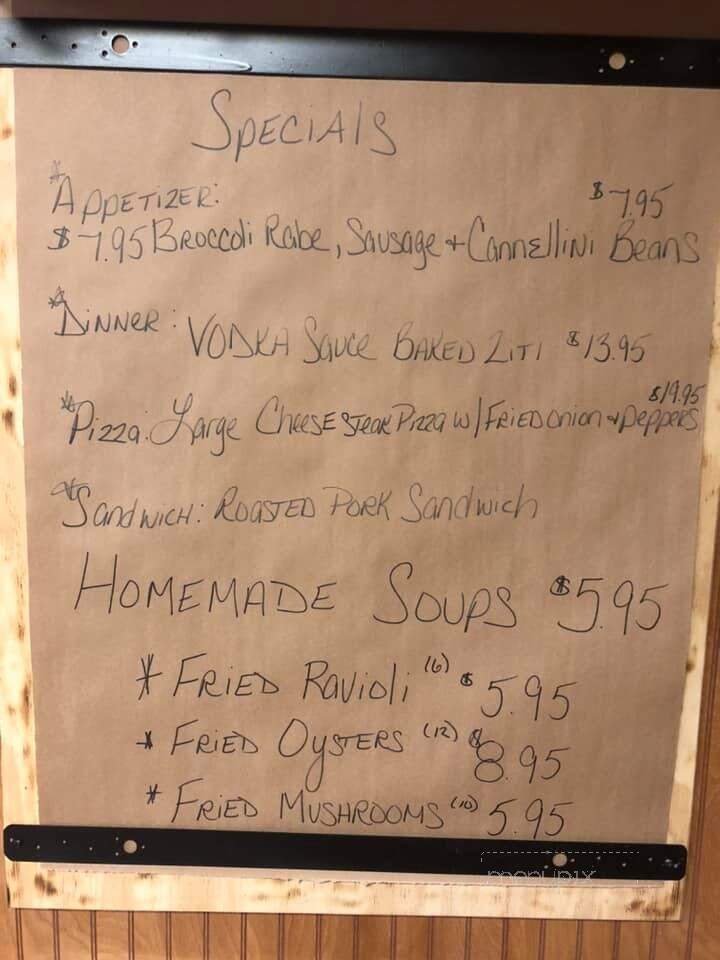 Specials
*Appetizer: $7.95
$7.95 Broccoli Rabe, Sausage + Cannellini Beans
*Dinner: Vodka Sauce Baked Ziti $13.95
$19.95
*Pizza: Large Cheese Steak Pizza w/ Fried Onion + Peppers
*Sandwich: Roasted Pork Sandwich
Homemade Soups $5.95
* Fried Ravioli (6) $5.95
* Fried Oysters (12) $8.95
* Fried Mushrooms (10) 5.95
menupix